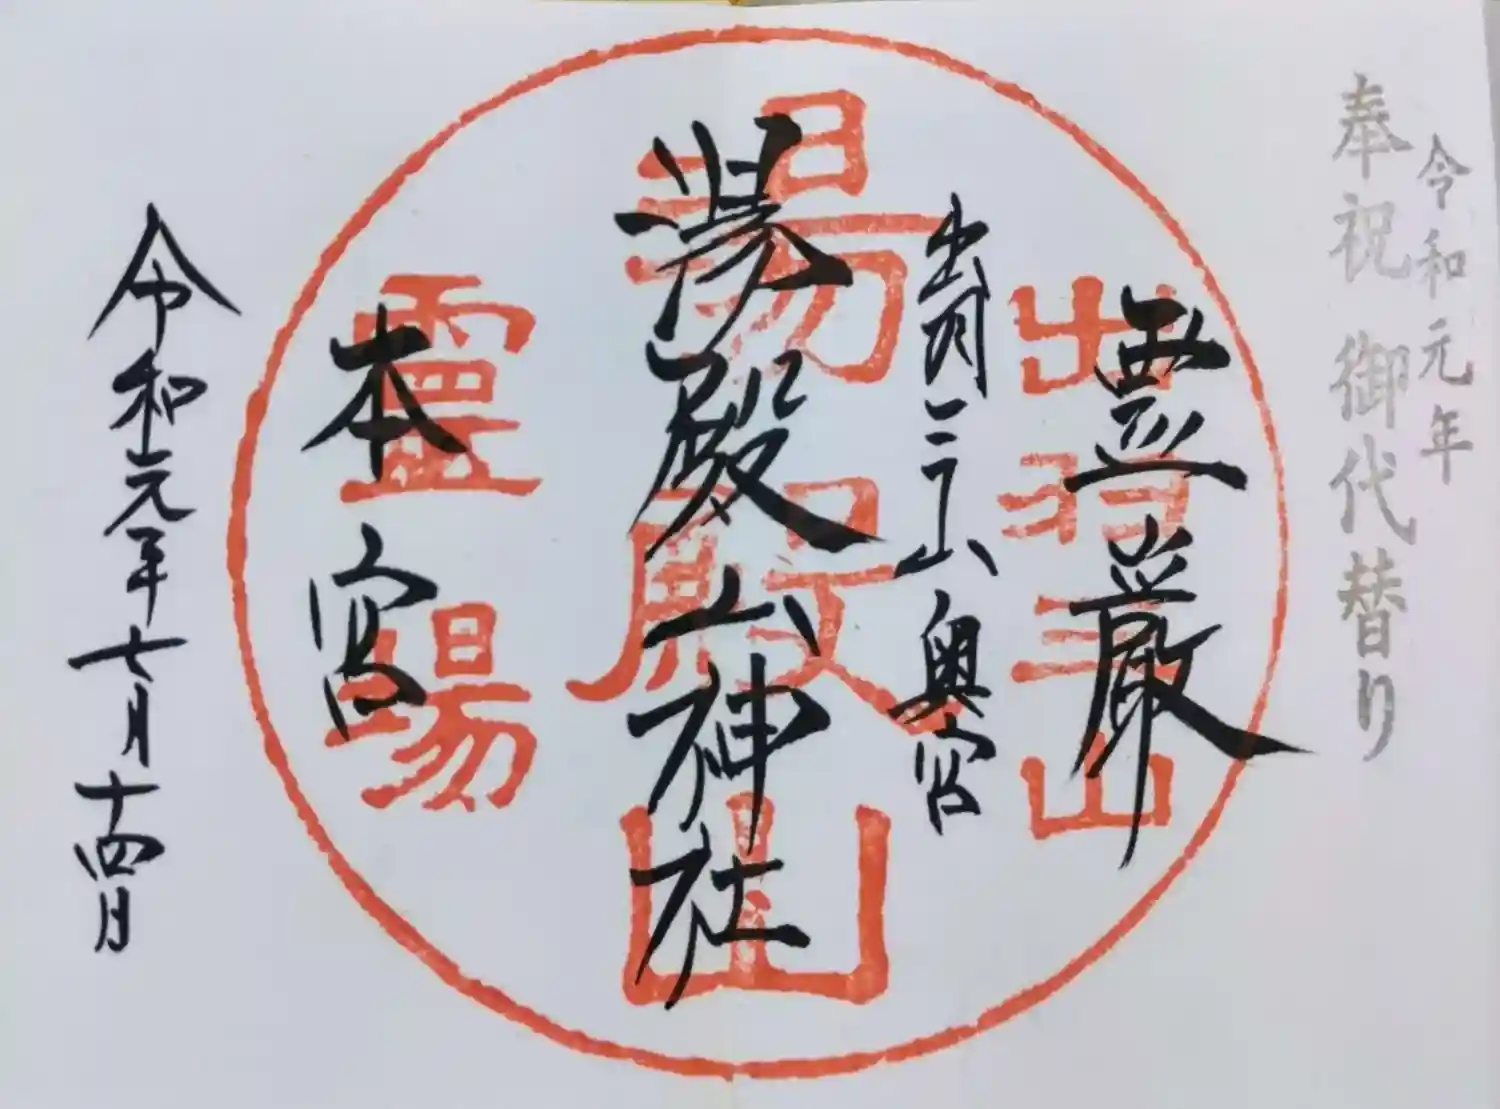 令和元年
奉祝 御代替り
霊巌
出羽三山
出羽三山奥宮
湯殿山神社
湯殿山
本宮
靈場
令和元年七月十四日